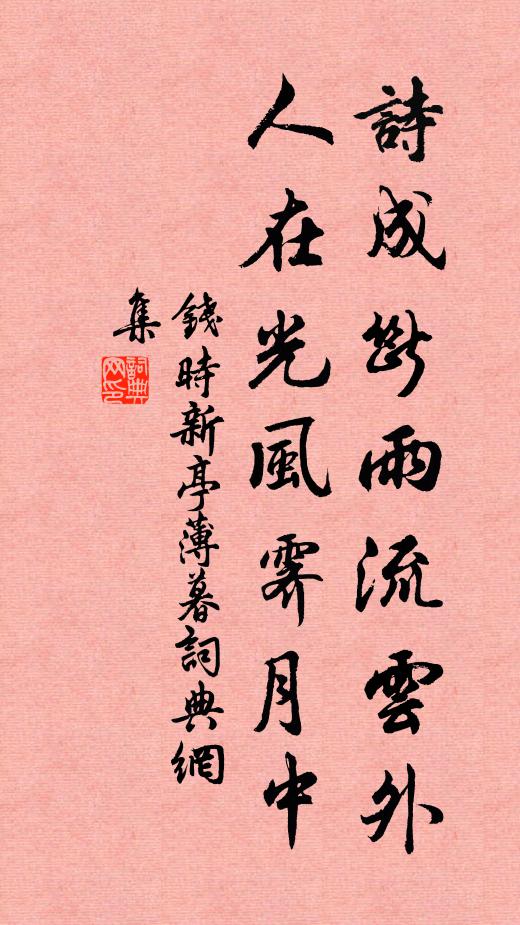 詩成斷雨流雲外
人在光風霽月中
錢時新亭薄暮詞典網
集
詞典
网印